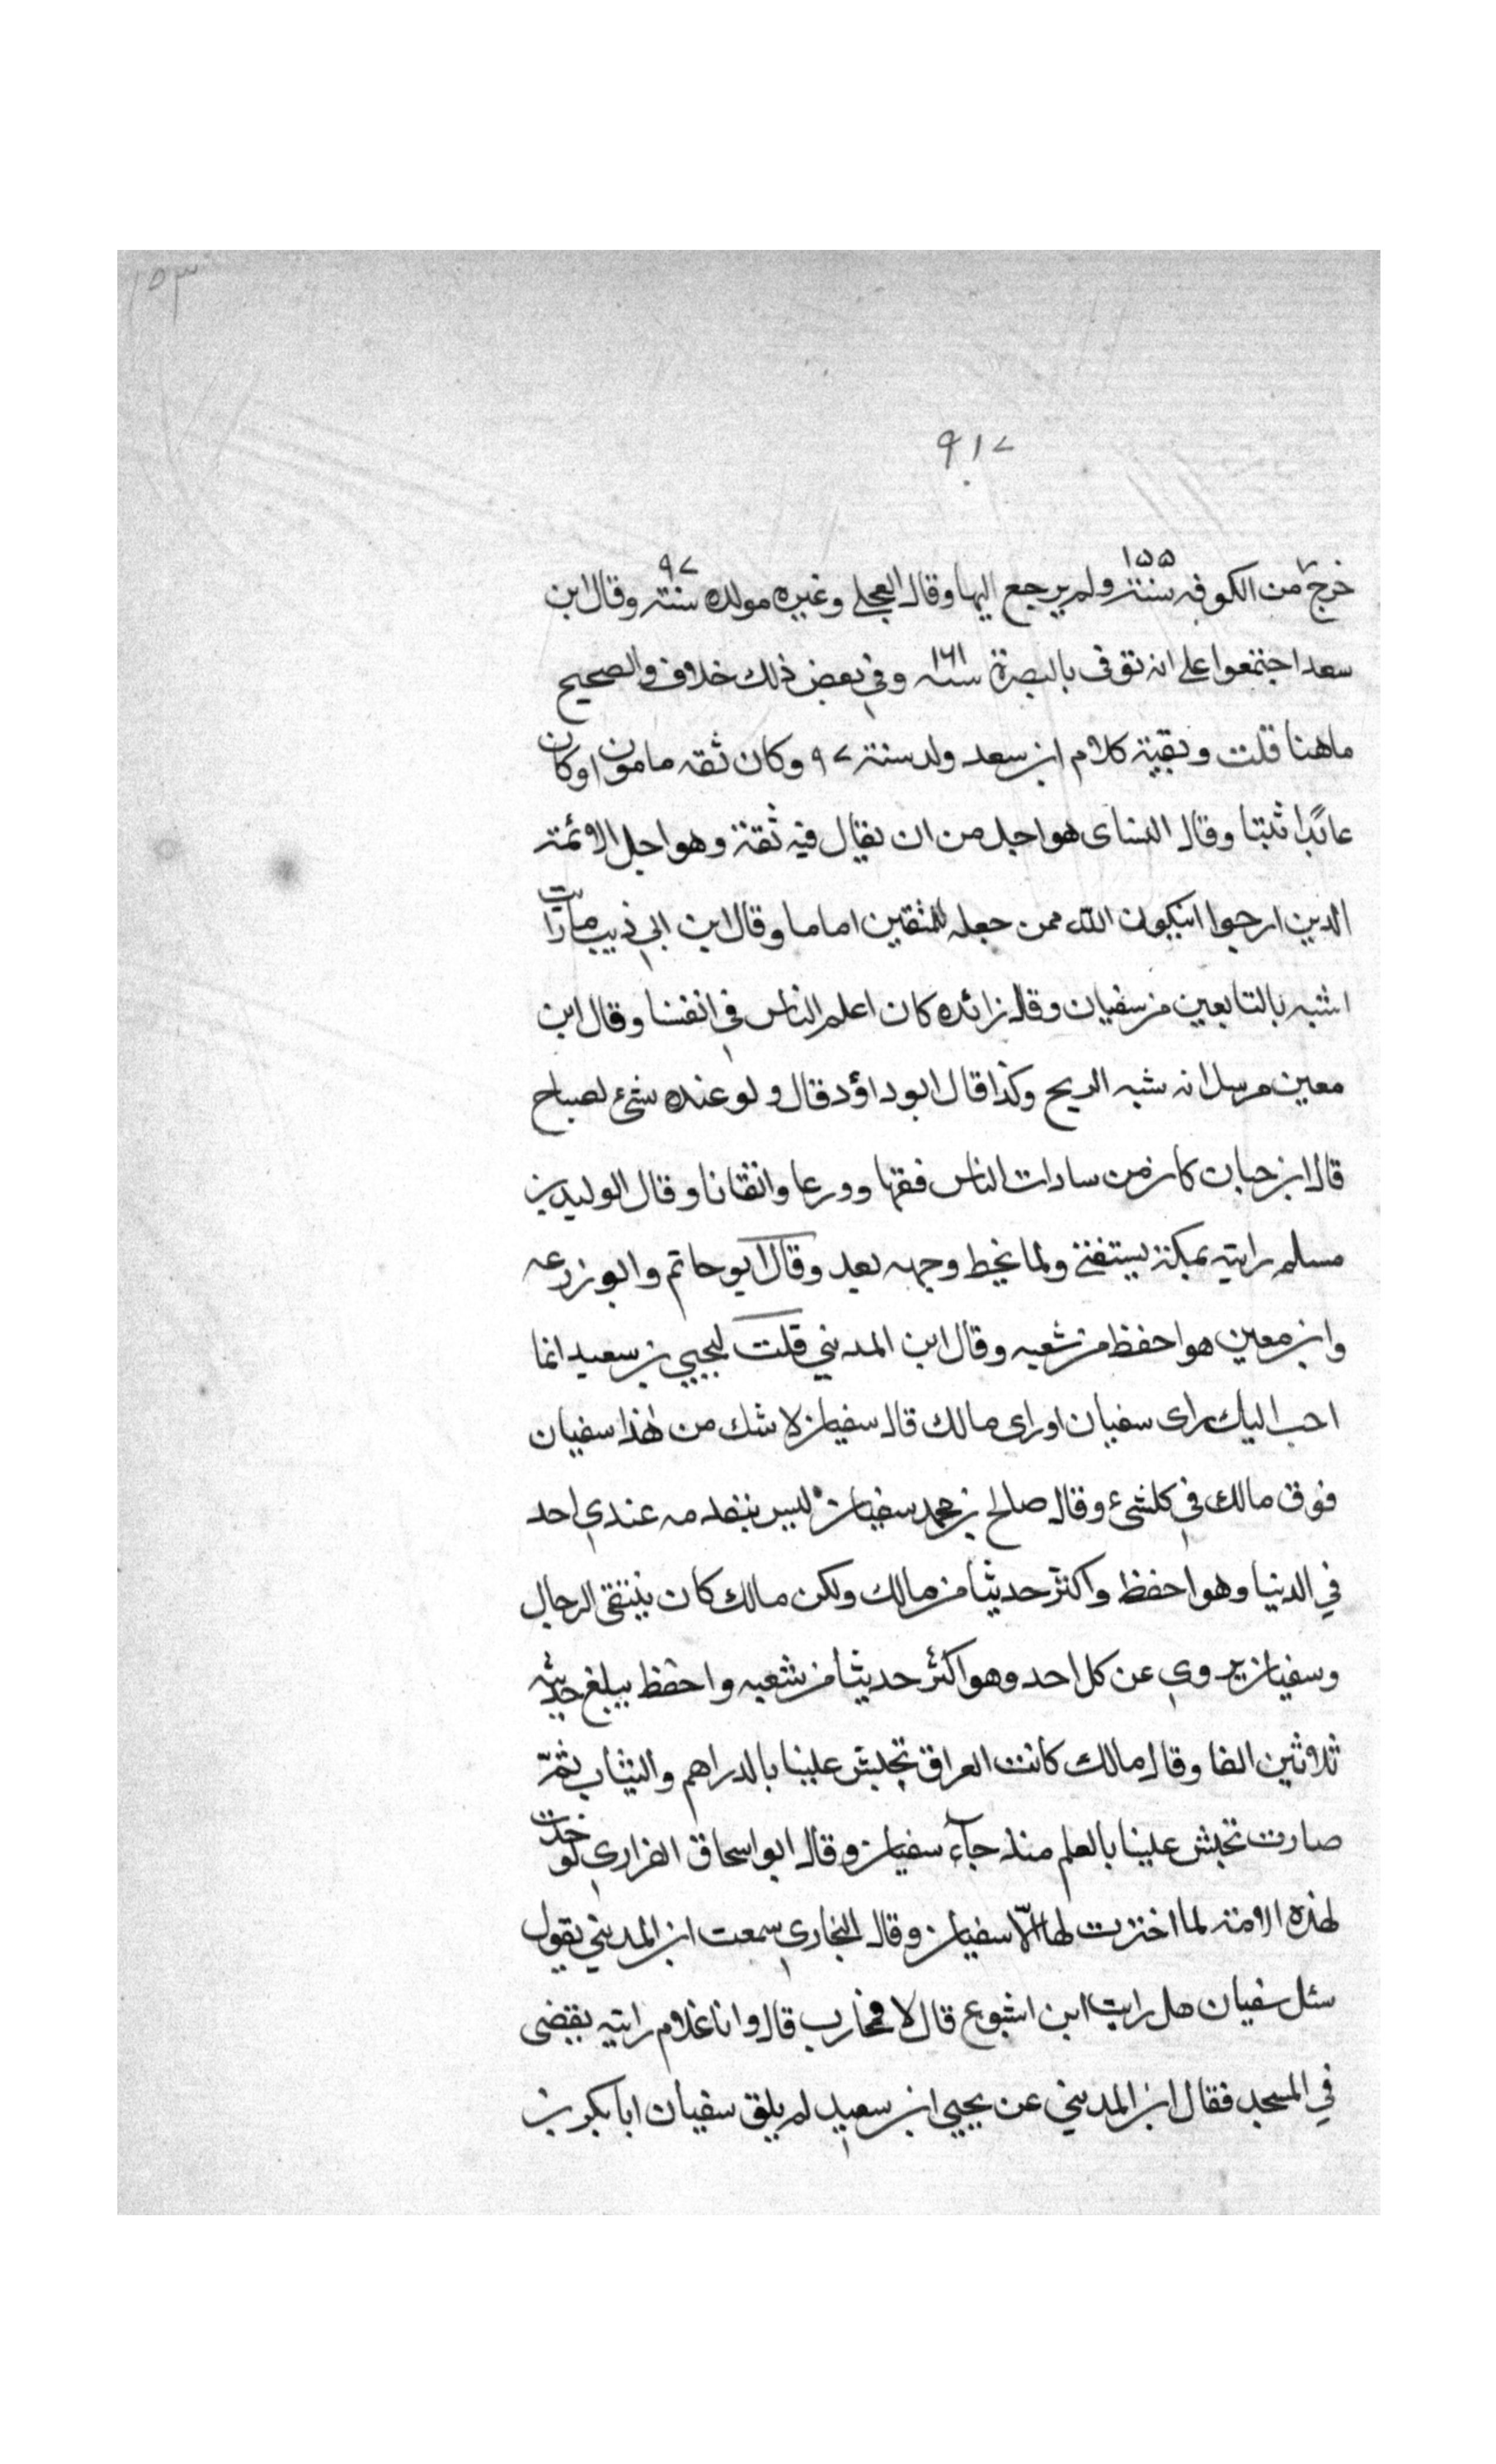 ١٥٣
٩١٧
خرج من الكوفه سنة ١٥٥ ولم يرجع اليها وقال العجلي وغيره مولده سنة ٩٧ وقال ابن
سعد اجتمعوا على انه توفى بالبصرة سنه ١٦١ وفي بعض ذلك خلاف والصحيح
ماهنا قلت وبقية كلام ابن سعد ولد سنة ٩٧ وكان ثقه مامونا وكان
عابدًا ثبتا وقال النساى هو اجل من ان يقال فيه ثقة وهو احل الائمة
الذين ارجوا انيكون الله ممن جعله للمتقين اماما وقال ابن ابي ذيب ما رايت
اشبه بالتابعين من سفيان وقال زائده كان اعلم الناس في انفسنا وقال ابن
معين مرسلانه شبه الريح وكذا قال ابو داؤد قال ولو عنده شئ لصاح
قال ابن حبان كان من سادات الناس فقها وورعا واتقانا وقال الوليد بن
مسلم رايته بمكة يستفتى ولما يخط وجهه بعد وقال ابو حاتم وابو زرعه
وابن معين هو احفظ من شعبه وقال ابن المديني قلت ليحيي بن سعيد انما
احب اليك راى سفيان او راى مالك قال سفيان لا شك من هذا سفيان
فوق مالك في كلشئ وقال صالح بن محمد سفيان ليس يتقدمه عندي احد
في الدنيا وهو احفظ واكثر حديثا من مالك ولكن مالك كان ينتقى الرجال
وسفيان يروي عن كل احد وهو اكثر حديثا من شعبه واحفظ يبلغ حديثه
ثلاثين الفا وقال مالك كانت العراق تجيش علينا بالدراهم والثياب ثمّ
صارت تجيش علينا بالعلم منذ جآء سفيان وقال ابو اسحاق الفزاري لو خيرت
لهذه الامة لما اخترت لها الّا سفيان وقال البخاري سمعت ابن المديني يقول
سئل سفيان هل رايت ابن اشوع قال لا فمحارب قال وانا غلام رايته يقضى
في المسجد فقال ابن المديني عن يحيي ابن سعيد لم يلق سفيان ابا بكر بن